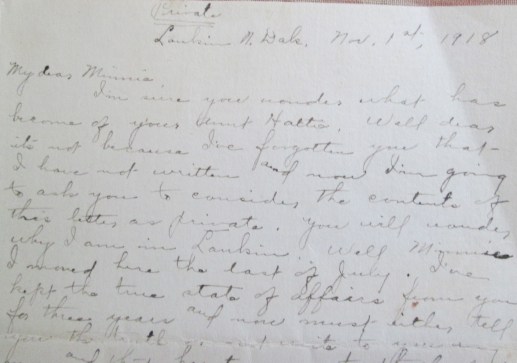 Private
Lankin N. Dak. Nov. 1st, 1918
My dear Minnie
I'm sure you wonder what has
become of your Aunt Hattie. Well dear
it's not because I've forgotten you that
I have not written and now I'm going
to ask you to consider the contents of
this letter as private. You will wonder
why I am in Lankin. Well Minnie
I moved here the last of July. I've
kept the true state of affairs from you
for three years and now must either tell
you the truth or not write to you any